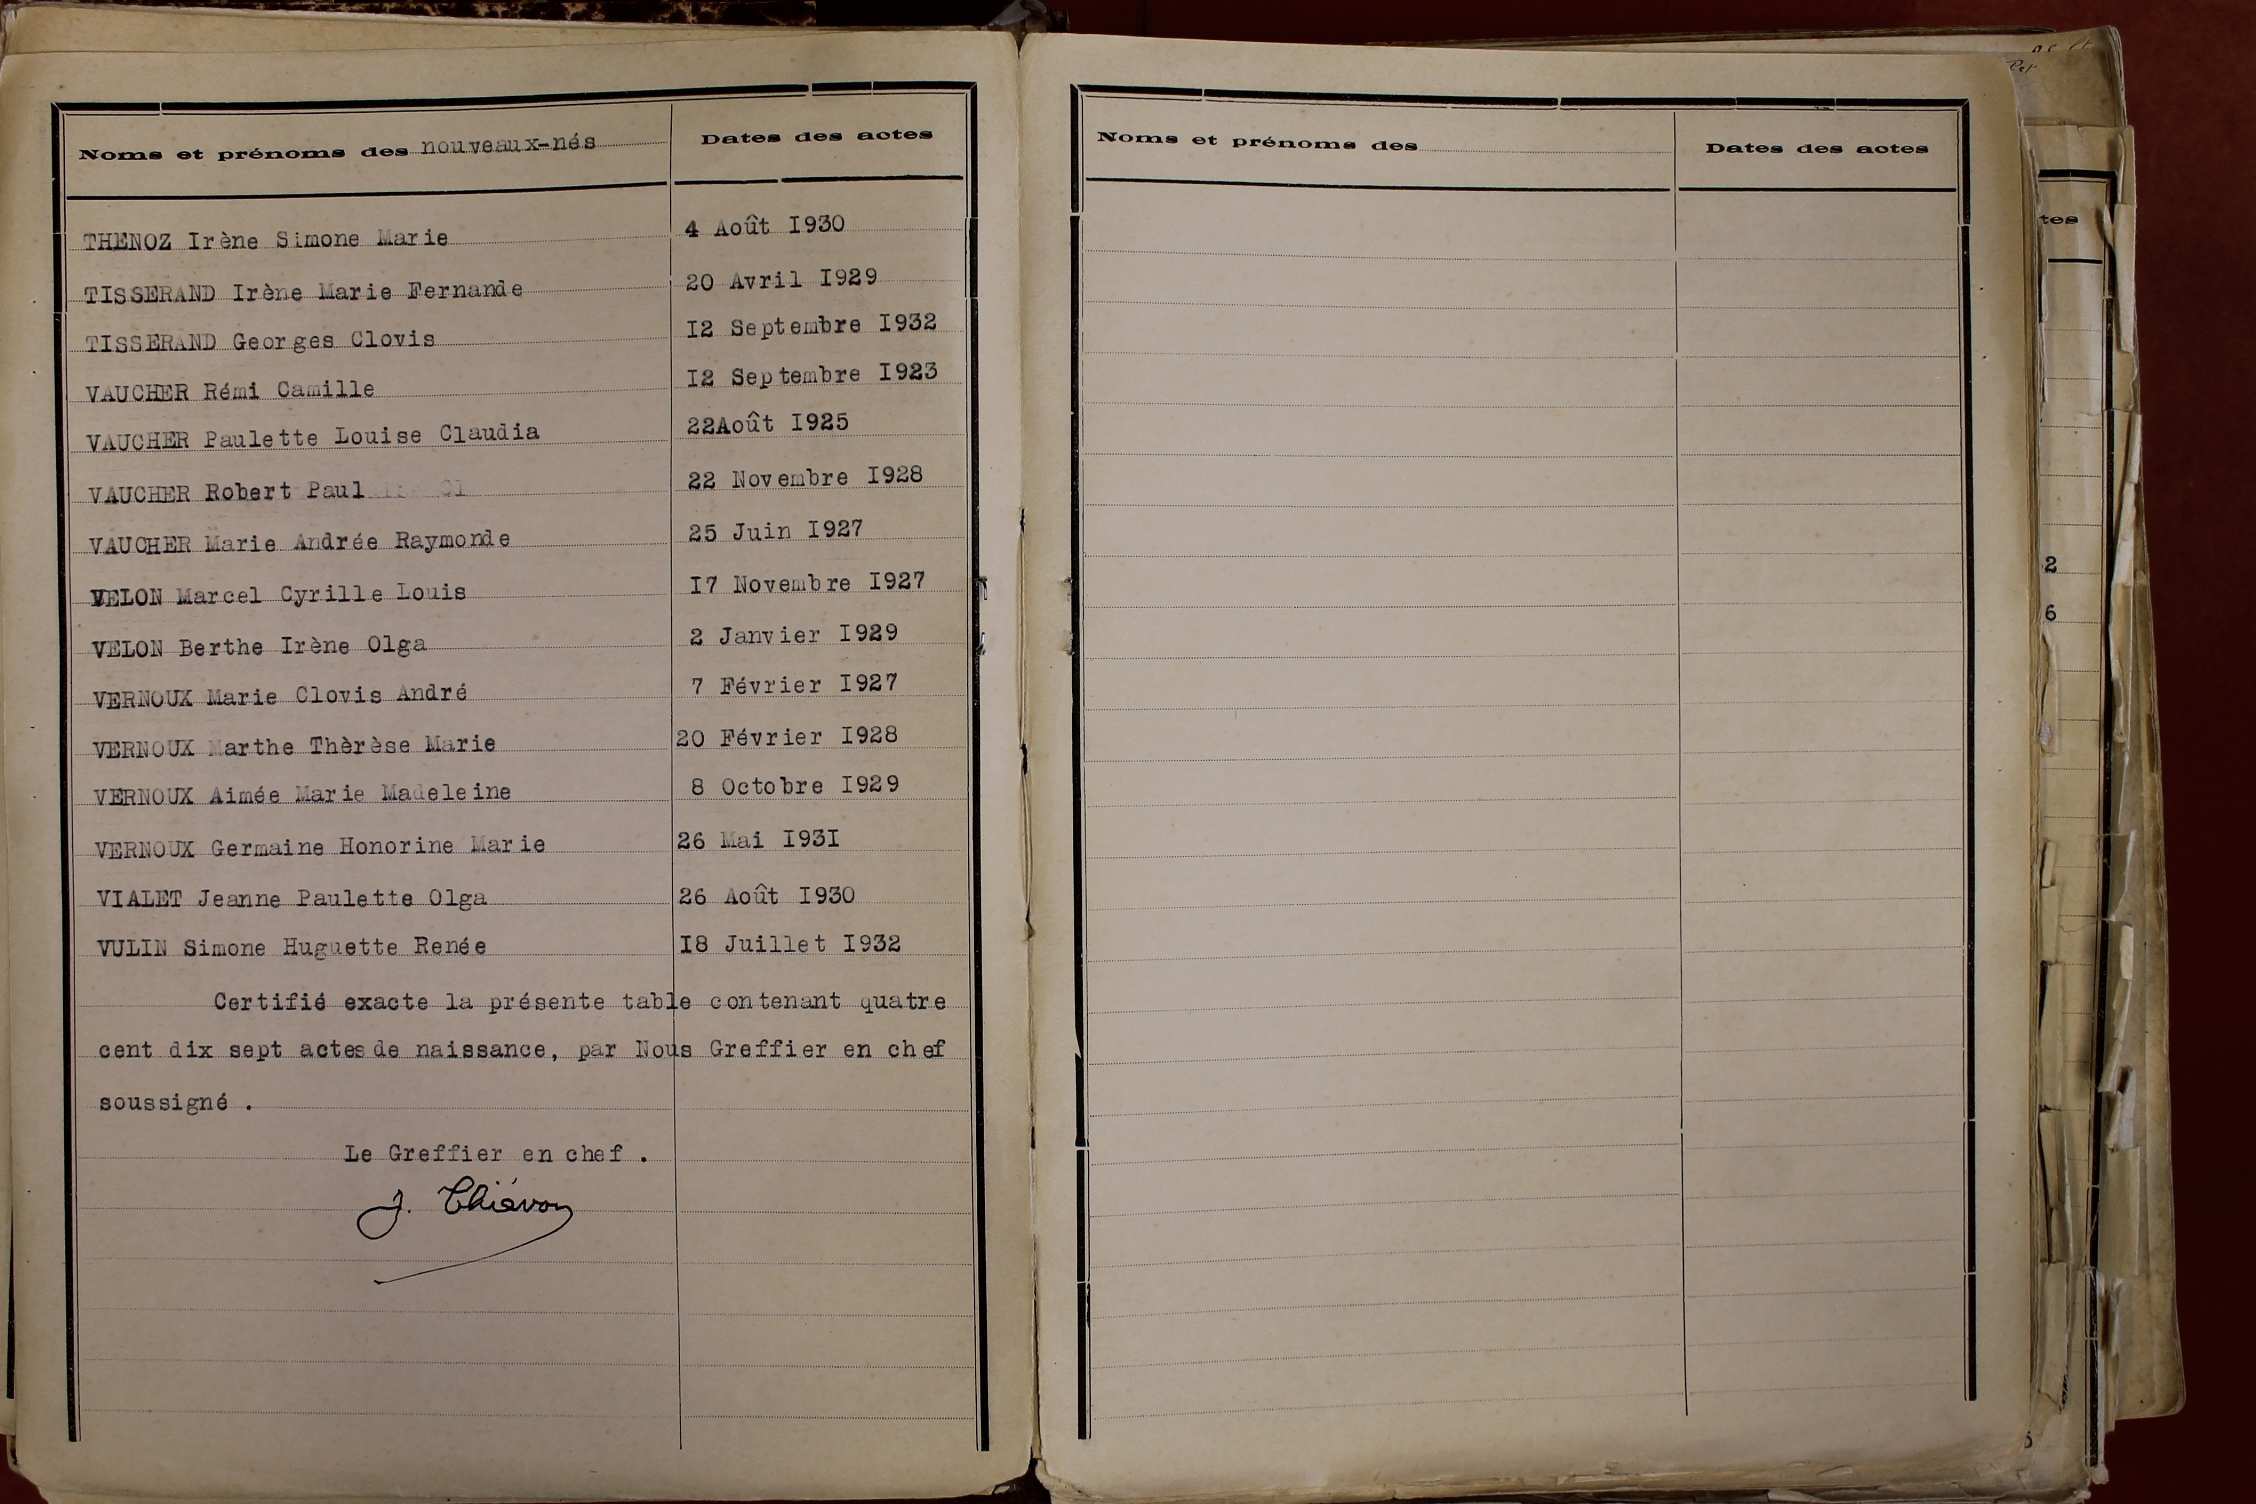 Noms et prénoms des nouveaux-nés Dates des actes
THENOZ Irène Simone Marie 4 Août I930
TISSERAND Irène Marie Fernande 20 Avril I929
TISSERAND Georges Clovis I2 Septembre I932
VAUCHER Rémi Camille I2 Septembre I923
VAUCHER Paulette Louise Claudia 22Août I925
VAUCHER Robert Paul 22 Novembre I928
VAUCHER Marie Andrée Raymonde 25 Juin I927
VELON Marcel Cyrille Louis I7 Novembre I927
VELON Berthe Irène Olga 2 Janvier I929
VERNOUX Marie Clovis André 7 Février I927
VERNOUX Marthe Thèrèse Marie 20 Février I928
VERNOUX Aimée Marie Madeleine 8 Octobre I929
VERNOUX Germaine Honorine Marie 26 Mai I93I
VIALET Jeanne Paulette Olga 26 Août I930
VULIN Simone Huguette Renée I8 Juillet I932
Certifié exacte la présente table contenant quatre
cent dix sept actes de naissance, par Nous Greffier en chef
soussigné .
Le Greffier en chef .
J. Thiévon
Noms et prénoms des Dates des actes
tes
2
6